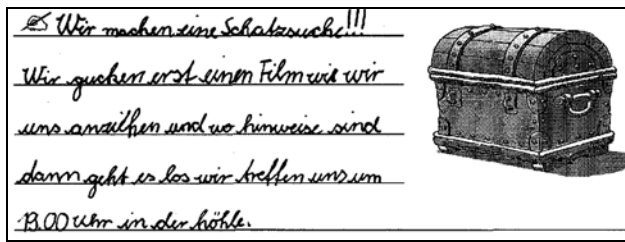 Wir machen eine Schatzsuche!!!
Wir gucken erst einen Film wie wir
uns anzihen und wo hinweise sind
dann geht es los wir treffen uns um
13.00 Uhr in der höhle.